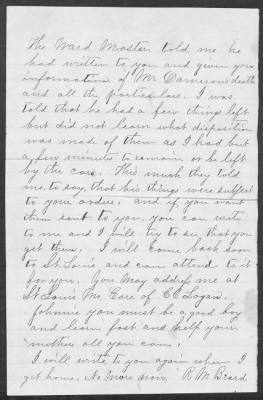 The Ward Master told me he
had written to you and given you
information of Mr Damerons death
and all the particulars. I was
told that he had a few things left
but did not learn what disposition
was made of them as I had but
a few minutes to remain or be left
by the cars. This much they told
me, to say, that his things were subject
to your orders, and if you want
them sent to you, you can write
to me and I will try to see that you
get them, I will come back soon
to St Louis and can attend to it
for you. You May address me at
St Louis Mo, Care of E C Logan.
Johnnie you must be a good boy
and learn fast and help your
mother all you can.
I will write to you again when I
get home, No More now, R M Beard